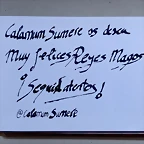 Calamum Sumere os desea
Muy felices Reyes Magos
¡Seguid atentos!
@Calamum Sumere